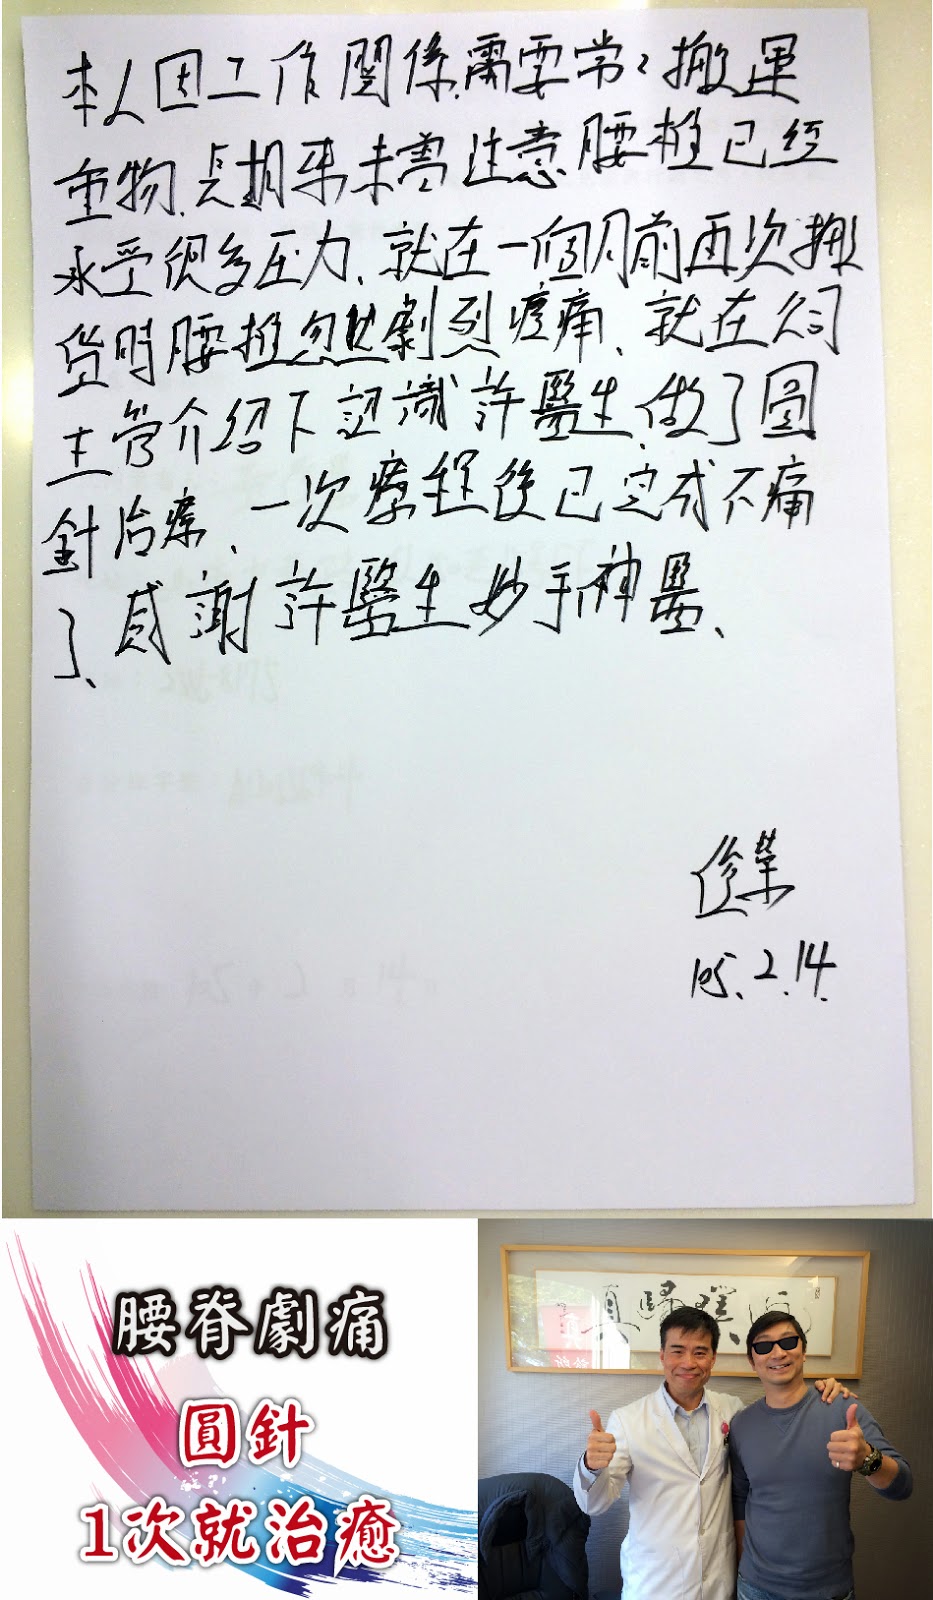 本人因工作關係、需要常々搬運
重物、長期來未嘗注意腰椎已經
承受很多压力、就在一個月前再次搬
貨時腰椎忽然劇烈疼痛、就在公司
主管介紹下認識許醫生、做了圓
針治療、一次療程後已完成不痛
了、感謝許醫生妙手神醫、
俊榮
105.2.14.
腰脊劇痛
圓針
1次就治癒
真歸璞返